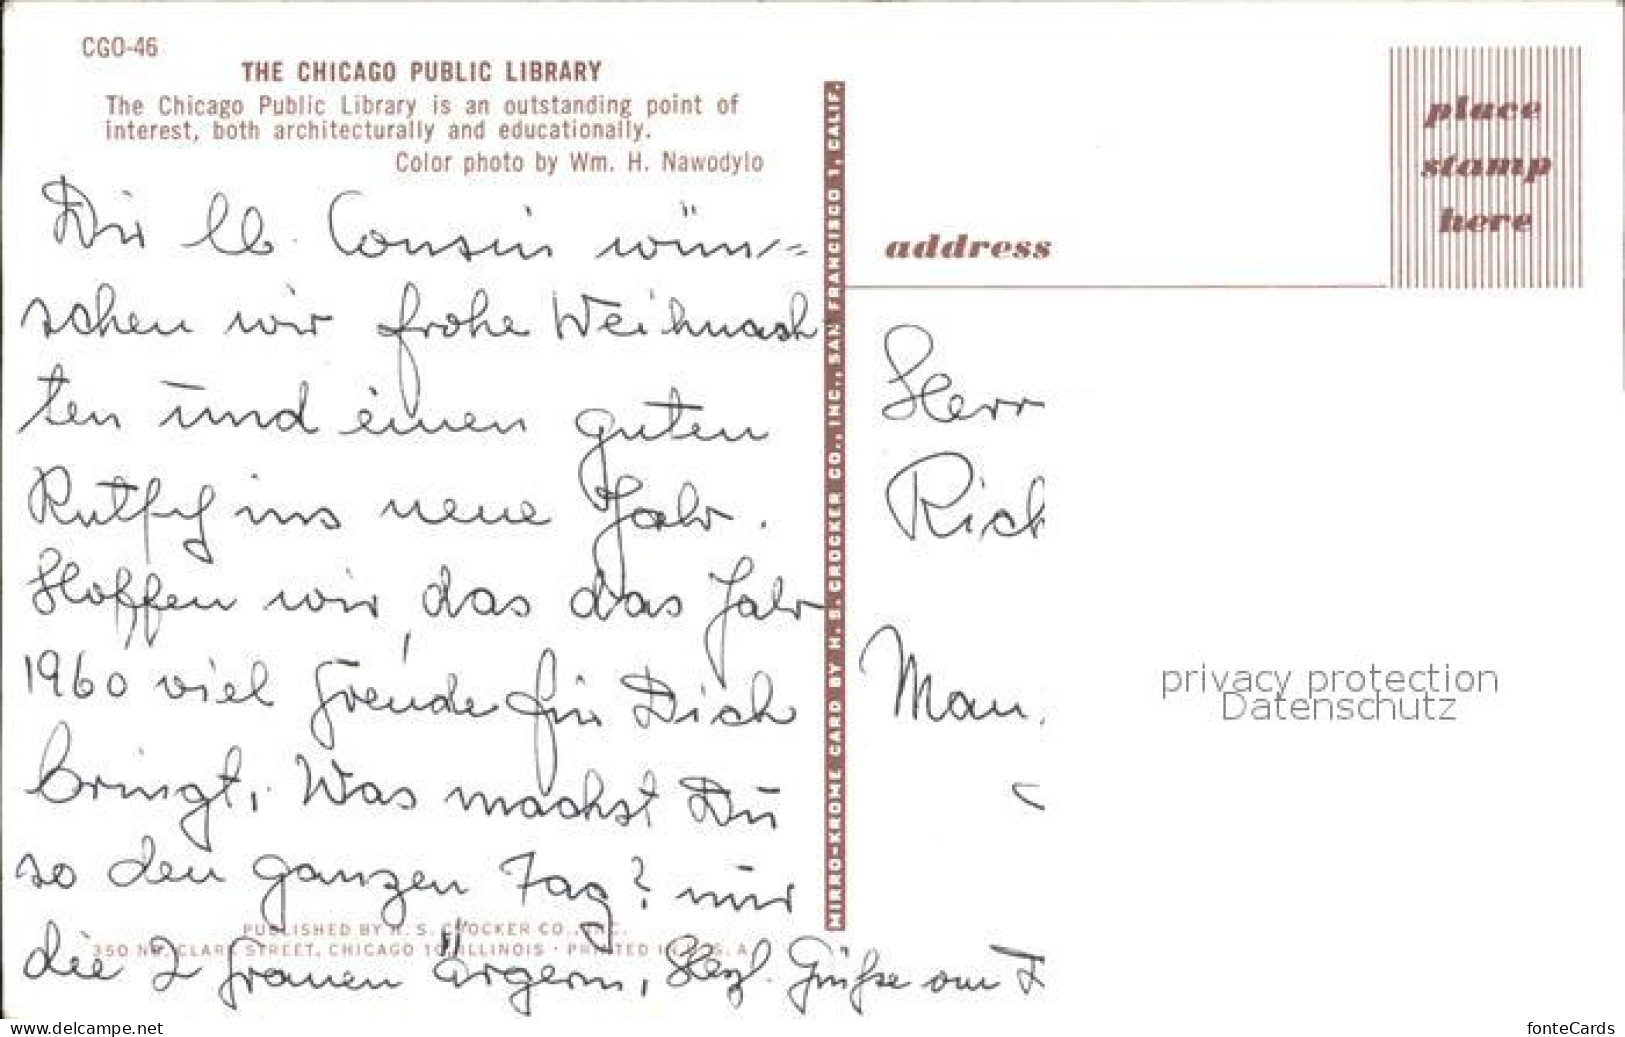 CGO-46
THE CHICAGO PUBLIC LIBRARY
The Chicago Public Library is an outstanding point of
interest, both architecturally and educationally.
Color photo by Wm. H. Nawodylo
Dir lb. Cousin wün=
schen wir frohe Weihnach
ten und einen guten
Rutsch ins neue Jahr.
Hoffen wir, das das Jahr
1960 viel Freude für Dich
bringt. Was machst Du
so den ganzen Tag? nur
die 2 Frauen Ärgern, Herzl. Grüße
PUBLISHED BY H. S. CROCKER CO., INC.
350 NO. CLARK STREET, CHICAGO 10, ILLINOIS · PRINTED IN U.S.A.
MIRRO-KROME CARD BY H. S. CROCKER CO., INC., SAN FRANCISCO 1, CALIF.
place
stamp
here
address
Herr
Rich
privacy protection
Datenschutz
www.delcampe.net
fonteCards